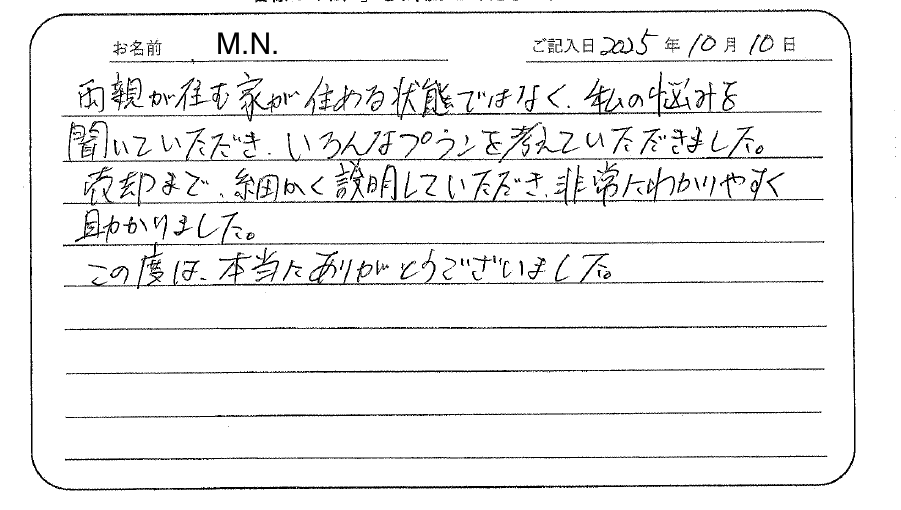 お名前 M.N. ご記入日 2025 年 10 月 10 日
両親が住む家が住める状態ではなく、私の悩みを
聞いていただき、いろんなプランを考えていただきました。
売却まで、細かく説明していただき、非常にわかりやすく
助かりました。
この度は、本当にありがとうございました。